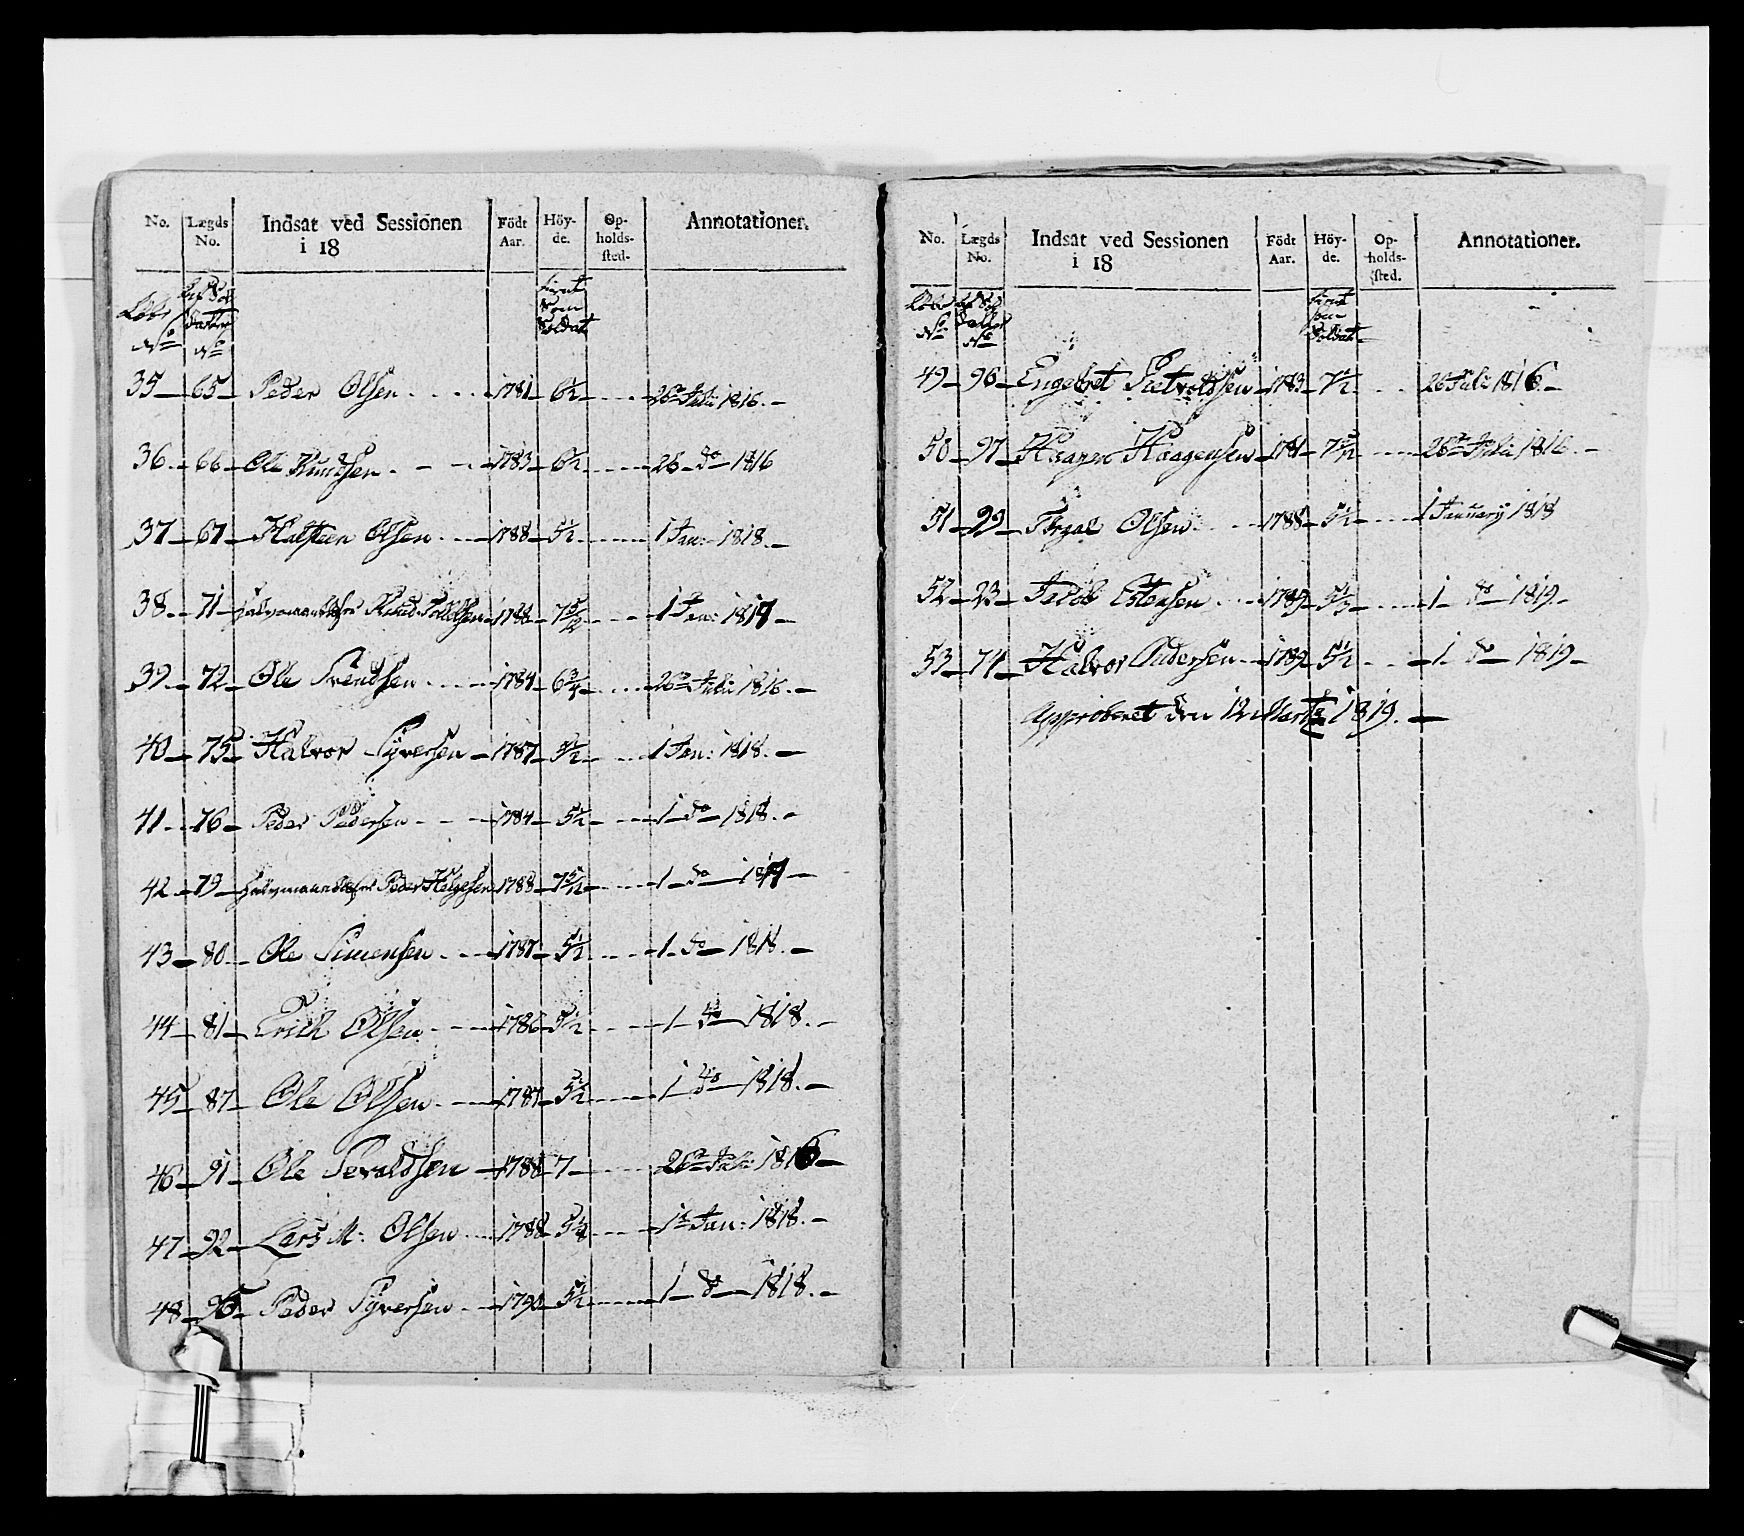 No. Lægds No. Indsat ved Sessionen i 18 Födt Aar. Höyde. Opholdssted. Annotationer.
Løbe No
35 65 Peder Olsen 1781 6½ 26de Juli 1816
36 66 Ole Knudsen 1783 6½ 26 do 1816
37 67 Halsteen Olsen 1788 5½ 1 Jan: 1818
38 71 Knud 7 5/12 1 Jan: 1817
39 72 Ole Svendsen 1784 6¾ 26de Juli 1816
40 75 Halvor Syversen 1787 5½ 1 Jan: 1818
41 76 Peder Pedersen 1784 5½ 1 do 1818
42 79 Peder Helgesen 1788 7 5/12 1 do 1817
43 80 Ole Simensen 1787 5½ 1 do 1818
44 81 Erich Olsen 1786 5½ 1 do 1818
45 87 Ole Olsen 1787 5½ 1 do 1818
46 91 Ole 1788 7 26de Juli 1816
47 92 Lars M: Olsen 1788 1 Jan: 1818
48 95 Peder Syversen 1790 5½ 1 do 1818
No. Lægds No. Indsat ved Sessionen i 18 Födt Aar. Höyde. Opholdssted. Annotationer.
Løbe No
49 96 Engebret 1783 7½ 26 Juli 1816
50 97 Haagen Haagensen 1781 7 5/12 26de Juli 1816
51 29 Olsen 1788 5½ 1 January 1818
52 23 Jacob Estensen 1789 1 do 1819
53 74 Halvor Pedersen 1789 5½ 1 do 1819
Approberet den 12 Marts 1819.